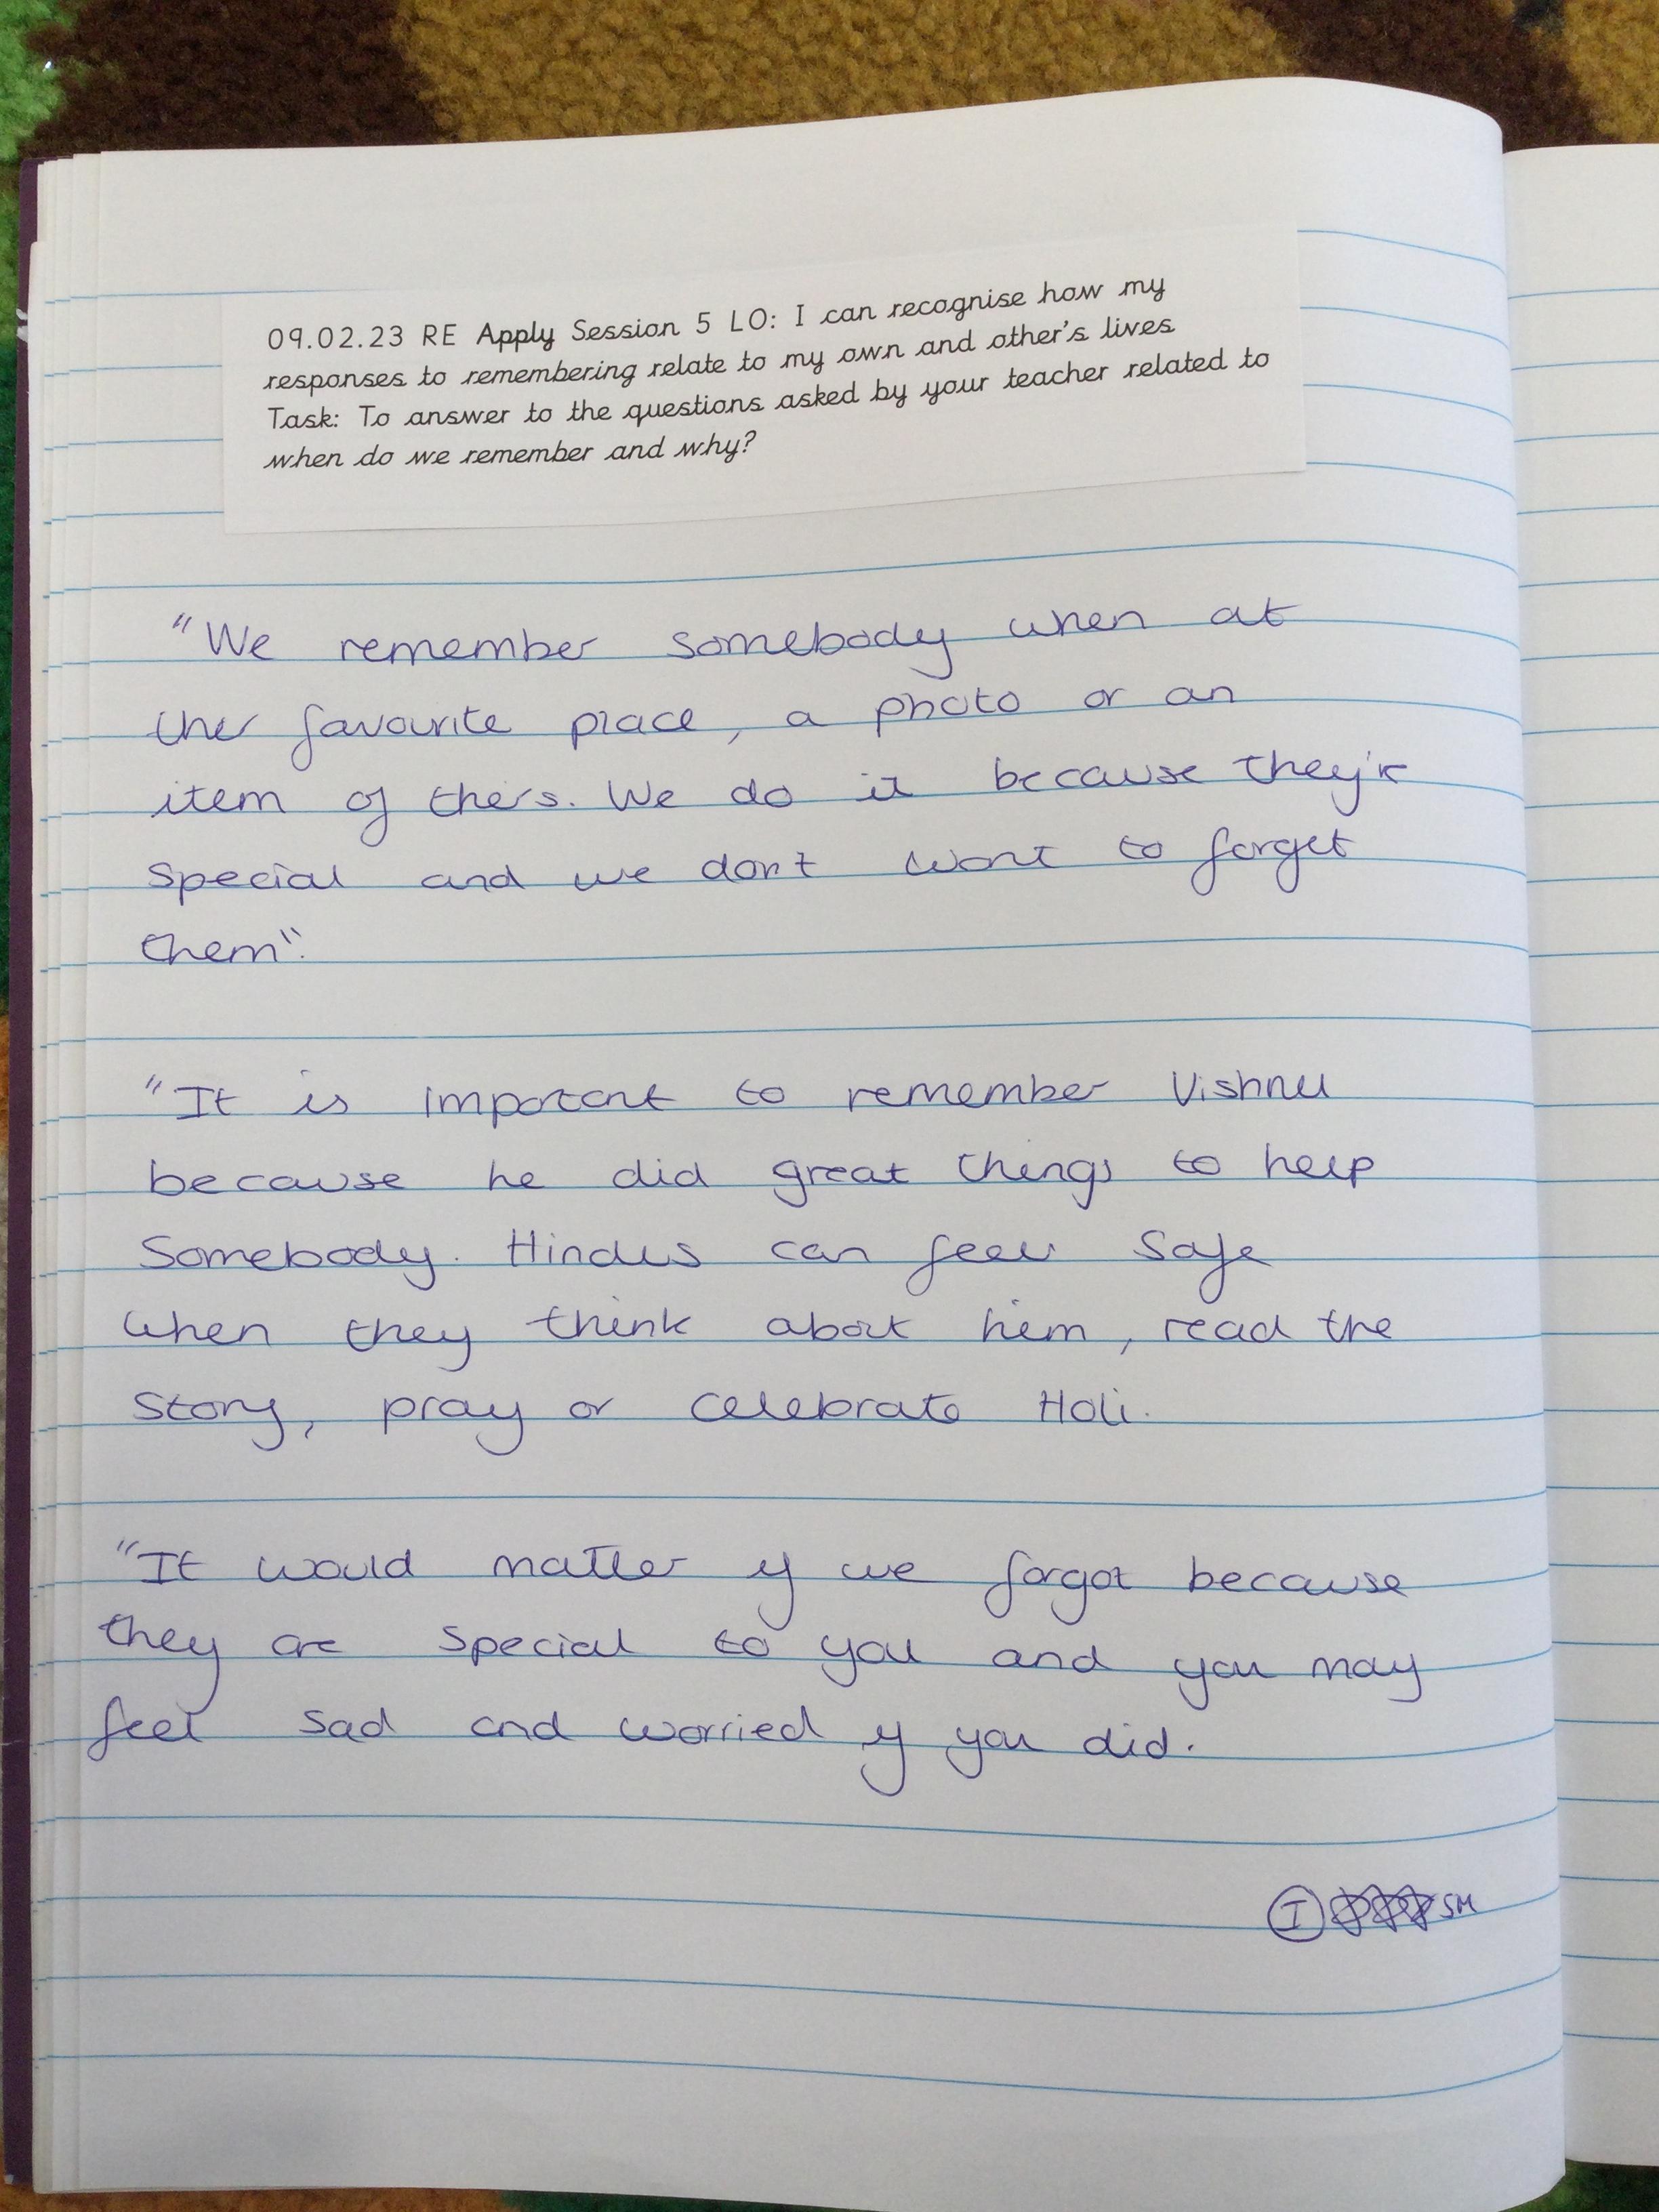 09.02.23 RE Apply Session 5 LO: I can recognise how my
responses to remembering relate to my own and other's lives
Task: To answer to the questions asked by your teacher related to
when do we remember and why?
"We remember somebody when at
ther favourite place, a photo or an
item of theirs. We do it because they're
special and we don't want to forget
them".
"It is important to remember Vishnu
because he did great things to help
somebody. Hindus can feel safe
when they think about him, read the
story, pray or celebrate Holi.
"It would matter if we forgot because
they are special to you and you may
feel sad and worried if you did.
I SM